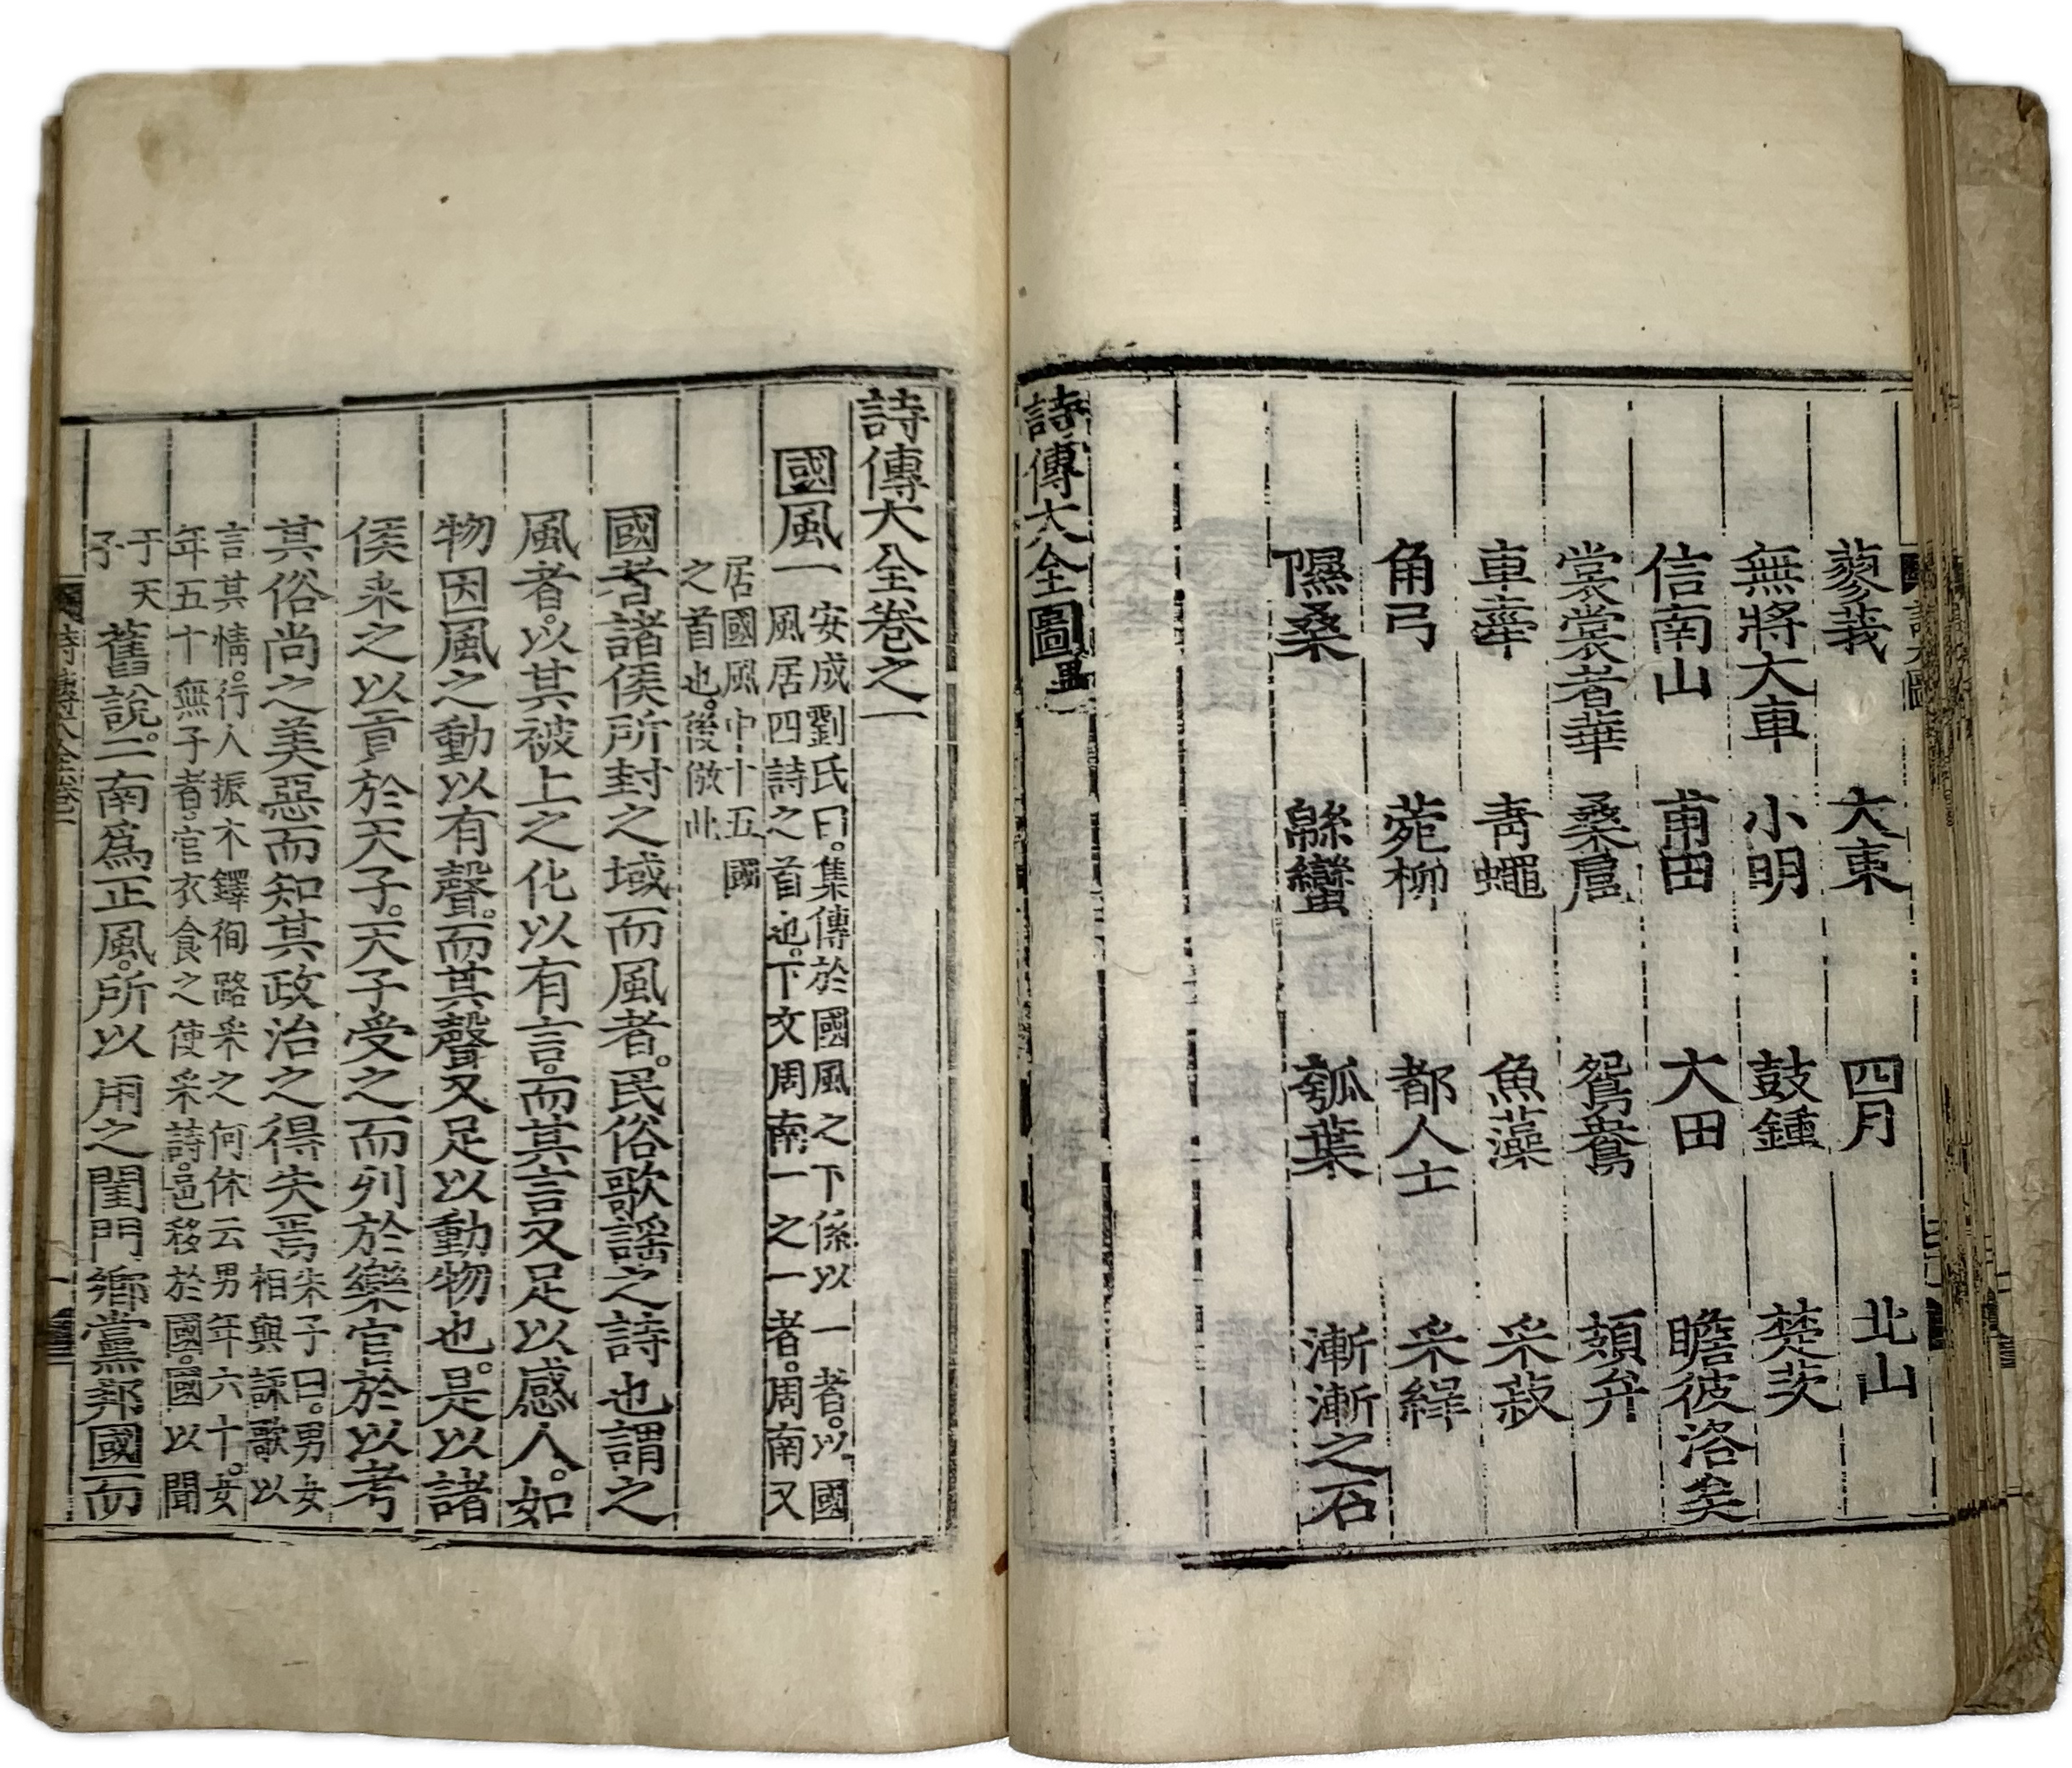 蓼莪 大東 四月 北山
無將大車 小明 鼓鍾 楚茨
信南山 甫田 大田 瞻彼洛矣
裳裳者華 桑扈 鴛鴦 頍弁
車舝 靑蠅 魚藻 采菽
角弓 菀柳 都人士 采綠
隰桑 緜蠻 瓠葉 漸漸之石
詩傳大全圖
詩傳大全卷之一
國風一
安成劉氏曰。集傳於國風之下係以一者。以國
風居四詩之首也。下文周南一之一者。周南又
居國風中十五國
之首也。後倣此
國者諸侯所封之域而風者。民俗歌謠之詩也謂之
風者。以其被上之化以有言。而其言又足以感人。如
物因風之動以有聲。而其聲又足以動物也。是以諸
侯采之以貢於天子。天子受之而列於樂官於以考
其俗尙之美惡而知其政治之得失焉
朱子曰。男女
相與詠歌以
言其情。行人振木鐸徇路采之何休云男年六十。女
年五十無子者。官衣食之使采詩。邑移於國。國以聞
于天
子
舊說。二南爲正風。所以用之閨門鄕黨邦國而
詩傳大全卷一